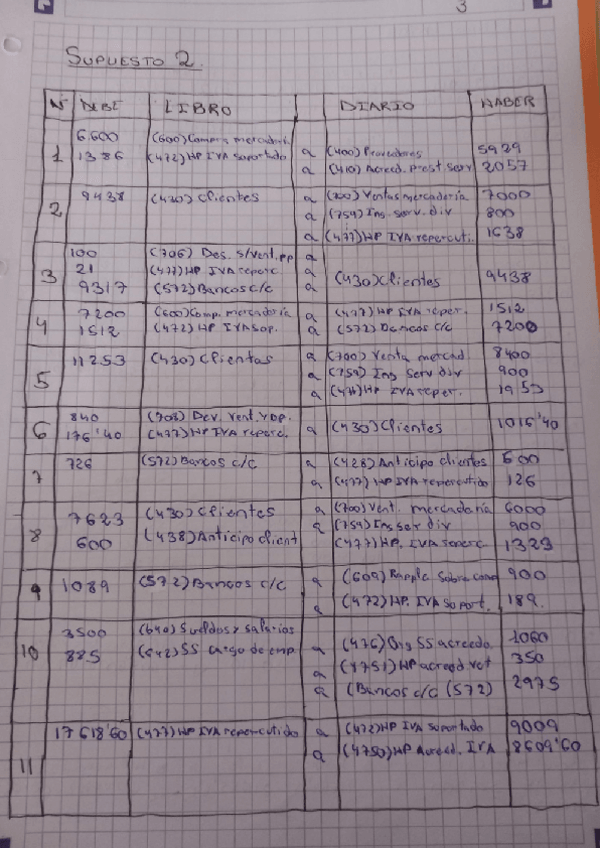 3
SUPUESTO 2.
Nº DEBE LIBRO DIARIO HABER
1 6.600 (600) Compra mercaderí. a (400) Proveedores 5929
1386 (472) HP IVA soportado a (410) Acreed. prest. serv 2057
2 9438 (430) Clientes a (700) Ventas mercadería 7000
a (759) Ing. serv. div 800
a (477) HP IVA repercuti. 1638
3 100 (706) Des. s/vent. pp a
21 (477) HP IVA reperc a (430) Clientes 9438
9317 (572) Bancos c/c a
4 7200 (600) Comp. mercadería a (477) HP IVA reper. 1512
1512 (472) HP IVA Sop. a (572) Bancos c/c 7200
5 11253 (430) Clientes a (700) Venta mercad. 8400
a (759) Ing serv div 900
a (477) HP IVA reper. 1953
6 840 (708) Dev. vent. y op.
176'40 (477) HP IVA reperc. a (430) Clientes 1016'40
7 726 (572) Bancos c/c a (428) Anticipo clientes 600
a (477) HP IVA repercutido 126
8 7623 (430) Clientes a (700) Vent. mercadería 6000
600 (438) Anticipo client a (759) Ing ser div 900
(477) HP. IVA reperc 1323
9 1089 (572) Bancos c/c a (609) Rapple sobre comp 900
a (472) HP. IVA soport. 189.
10 3500 (640) Sueldos y salarios
885 (642) SS cargo de emp a (476) Org SS acreedo. 1060
a (4751) HP acreed ret 350
a (Bancos c/c (572) 2975
11 17618'60 (477) HP IVA repercutido a (472) HP IVA soportado 9009
a (4750) HP Acreed. IVA 8609'60